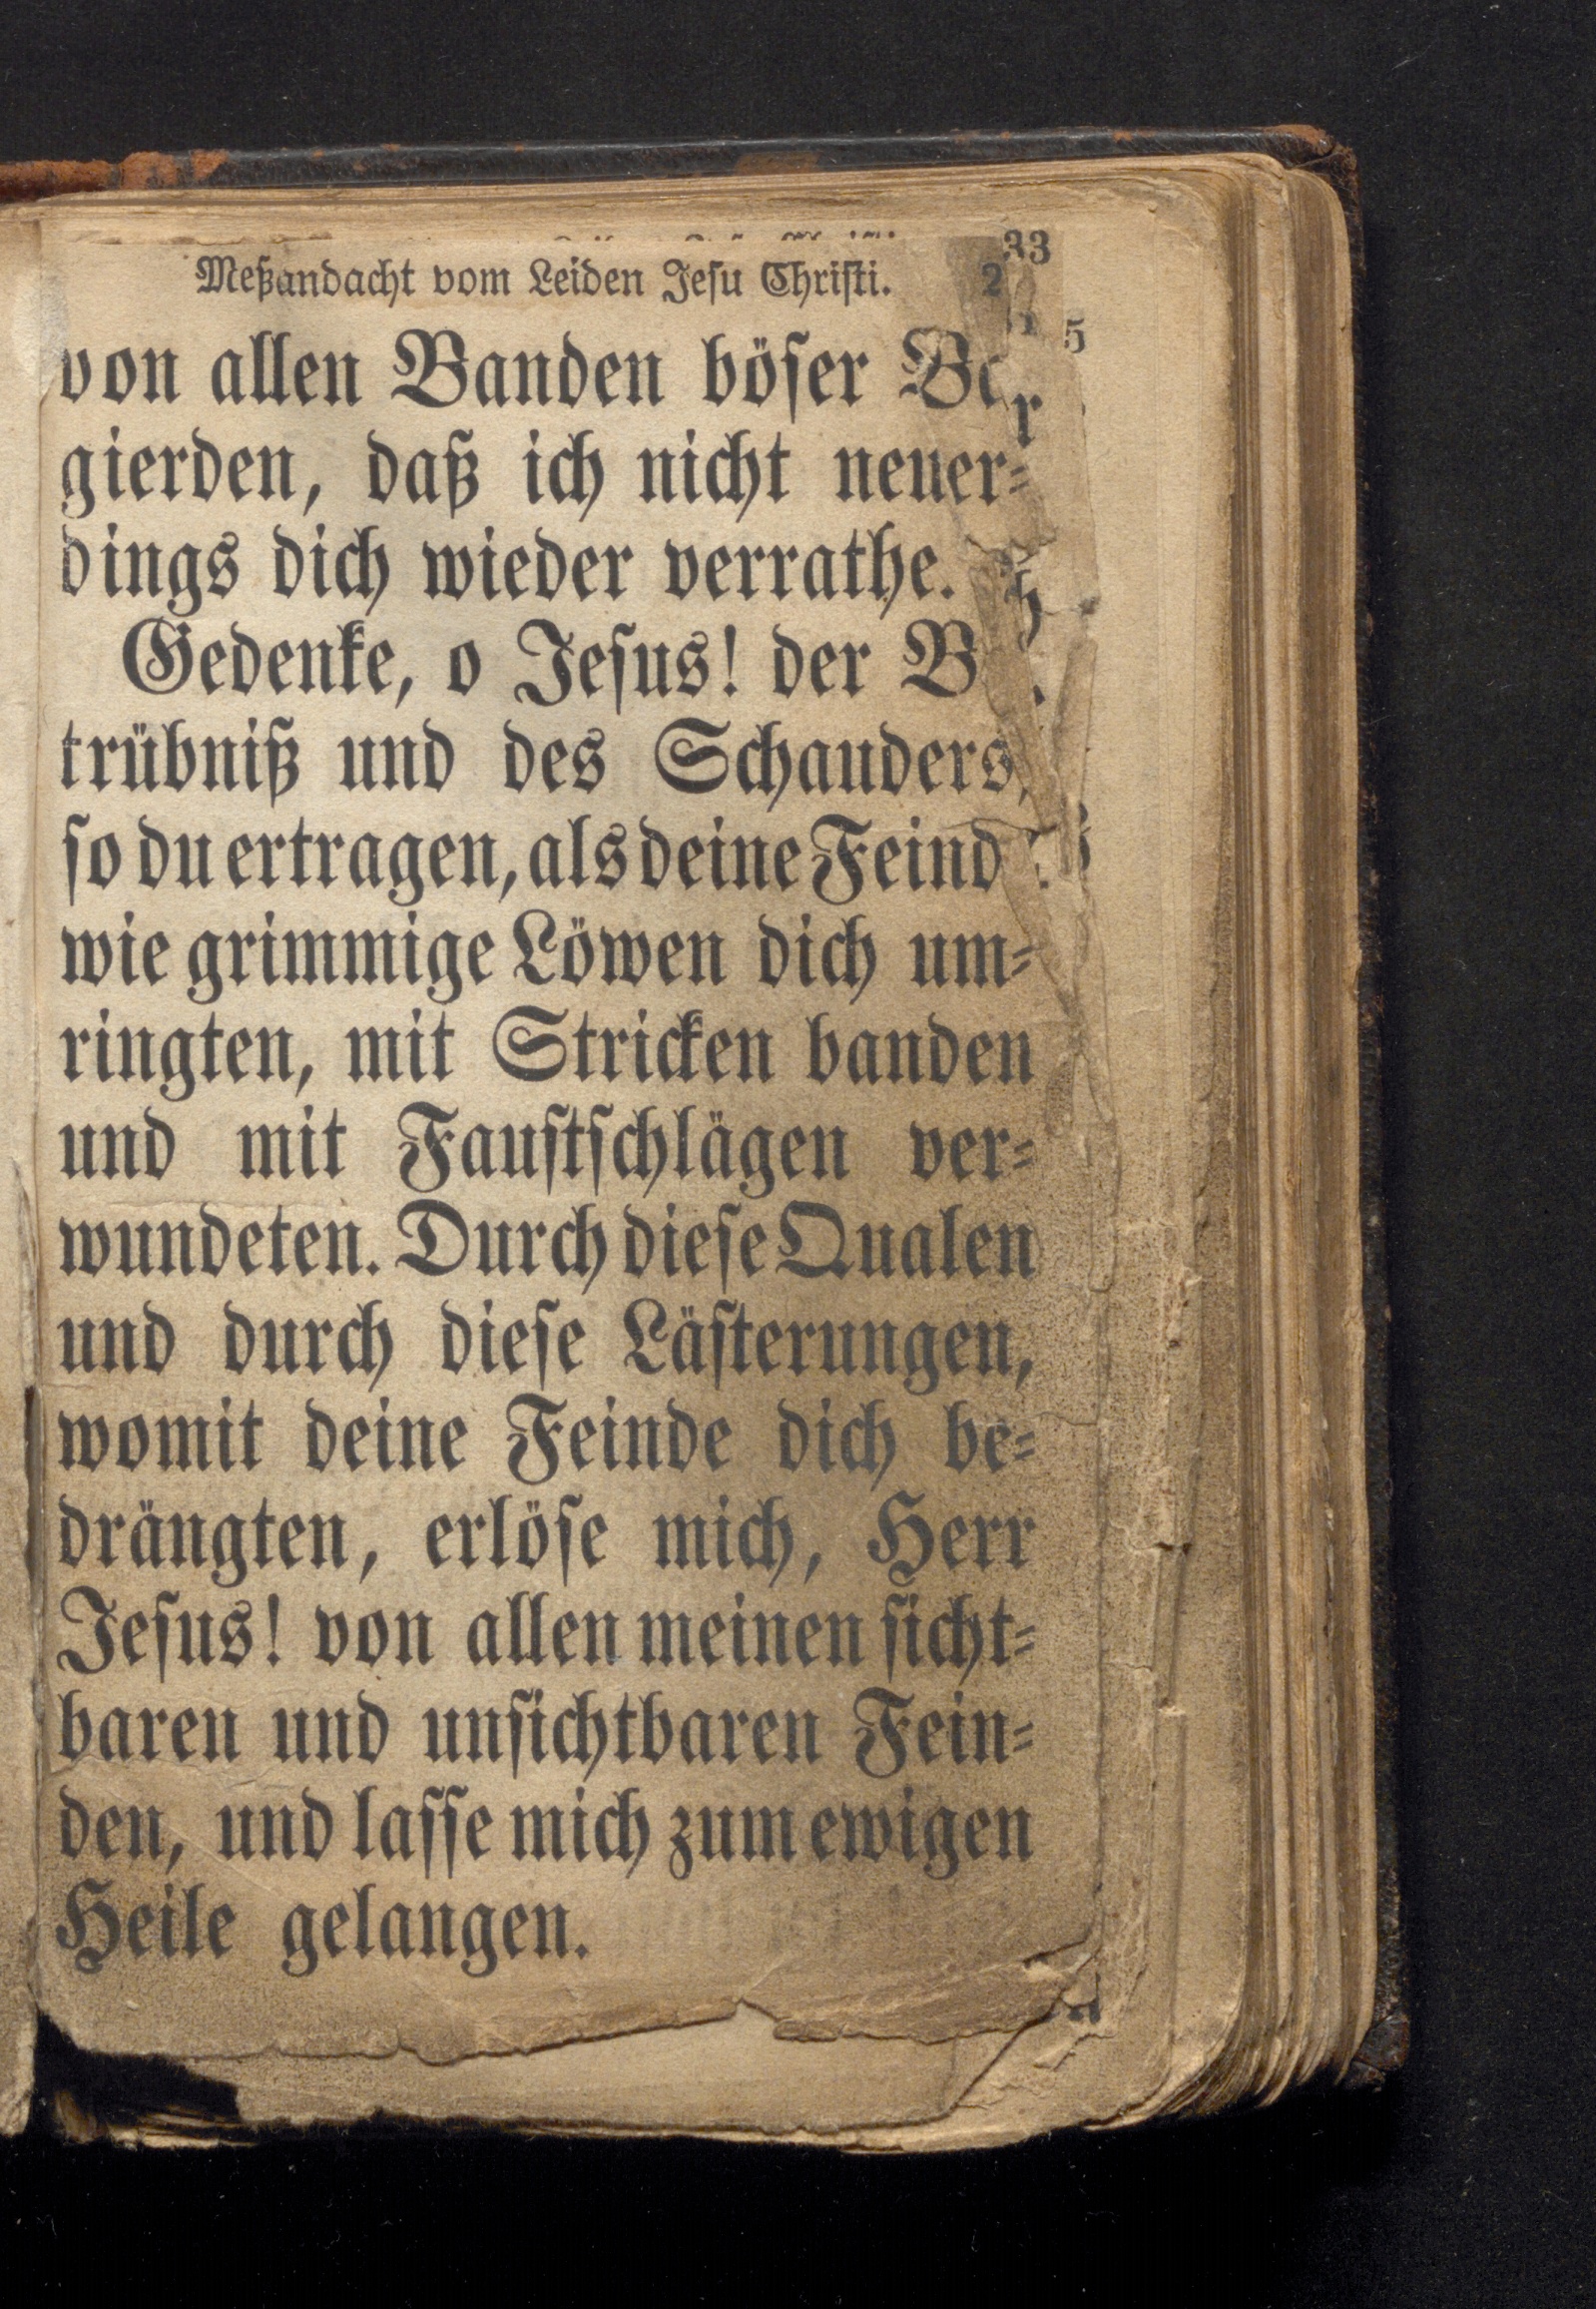 Meßandacht vom Leiden Jesu Christi. 2
33
5
von allen Banden böser Be
gierden, daß ich nicht neuer⸗
dings dich wieder verrathe.
Gedenke, o Jesus! der B
trübniß und des Schauders,
so du ertragen, als deine Feind
wie grimmige Löwen dich um⸗
ringten, mit Stricken banden
und mit Faustschlägen ver⸗
wundeten. Durch diese Qualen
und durch diese Lästerungen,
womit deine Feinde dich be⸗
drängten, erlöse mich, Herr
Jesus! von allen meinen sicht⸗
baren und unsichtbaren Fein⸗
den, und lasse mich zum ewigen
Heile gelangen.